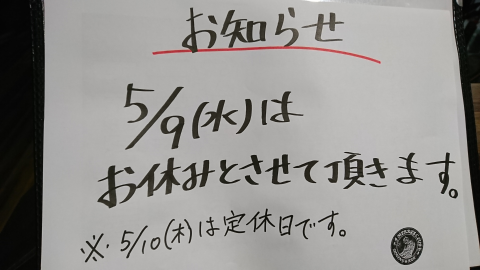 お知らせ
5/9(水)は
お休みとさせて頂きます。
※. 5/10(木)は定休日です。